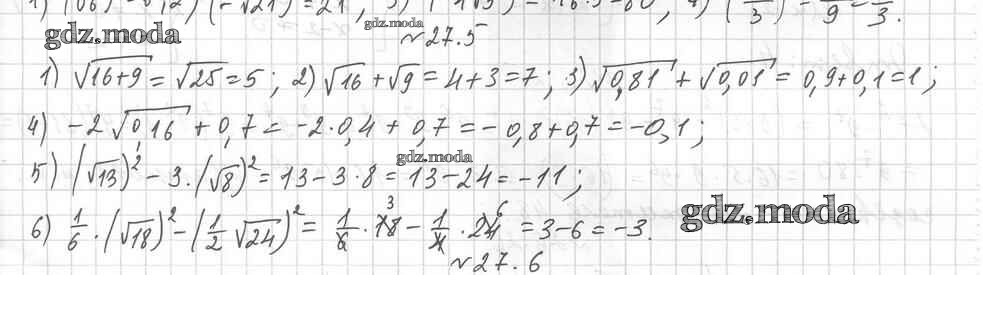 gdz.moda gdz.moda
№ 27.5
1) √16+9 = √25 = 5; 2) √16 + √9 = 4+3 = 7; 3) √0,81 + √0,01 = 0,9+0,1 = 1;
4) -2√0,16 + 0,7 = -2·0,4 + 0,7 = -0,8+0,7 = -0,1;
gdz.moda
5) (√13)² - 3·(√8)² = 13 - 3·8 = 13 - 24 = -11;
6) 1/6·(√18)² - (1/2 √24)² = 1/6·18 3 - 1/4·24 6 = 3-6 = -3.
gdz.moda
№ 27.6